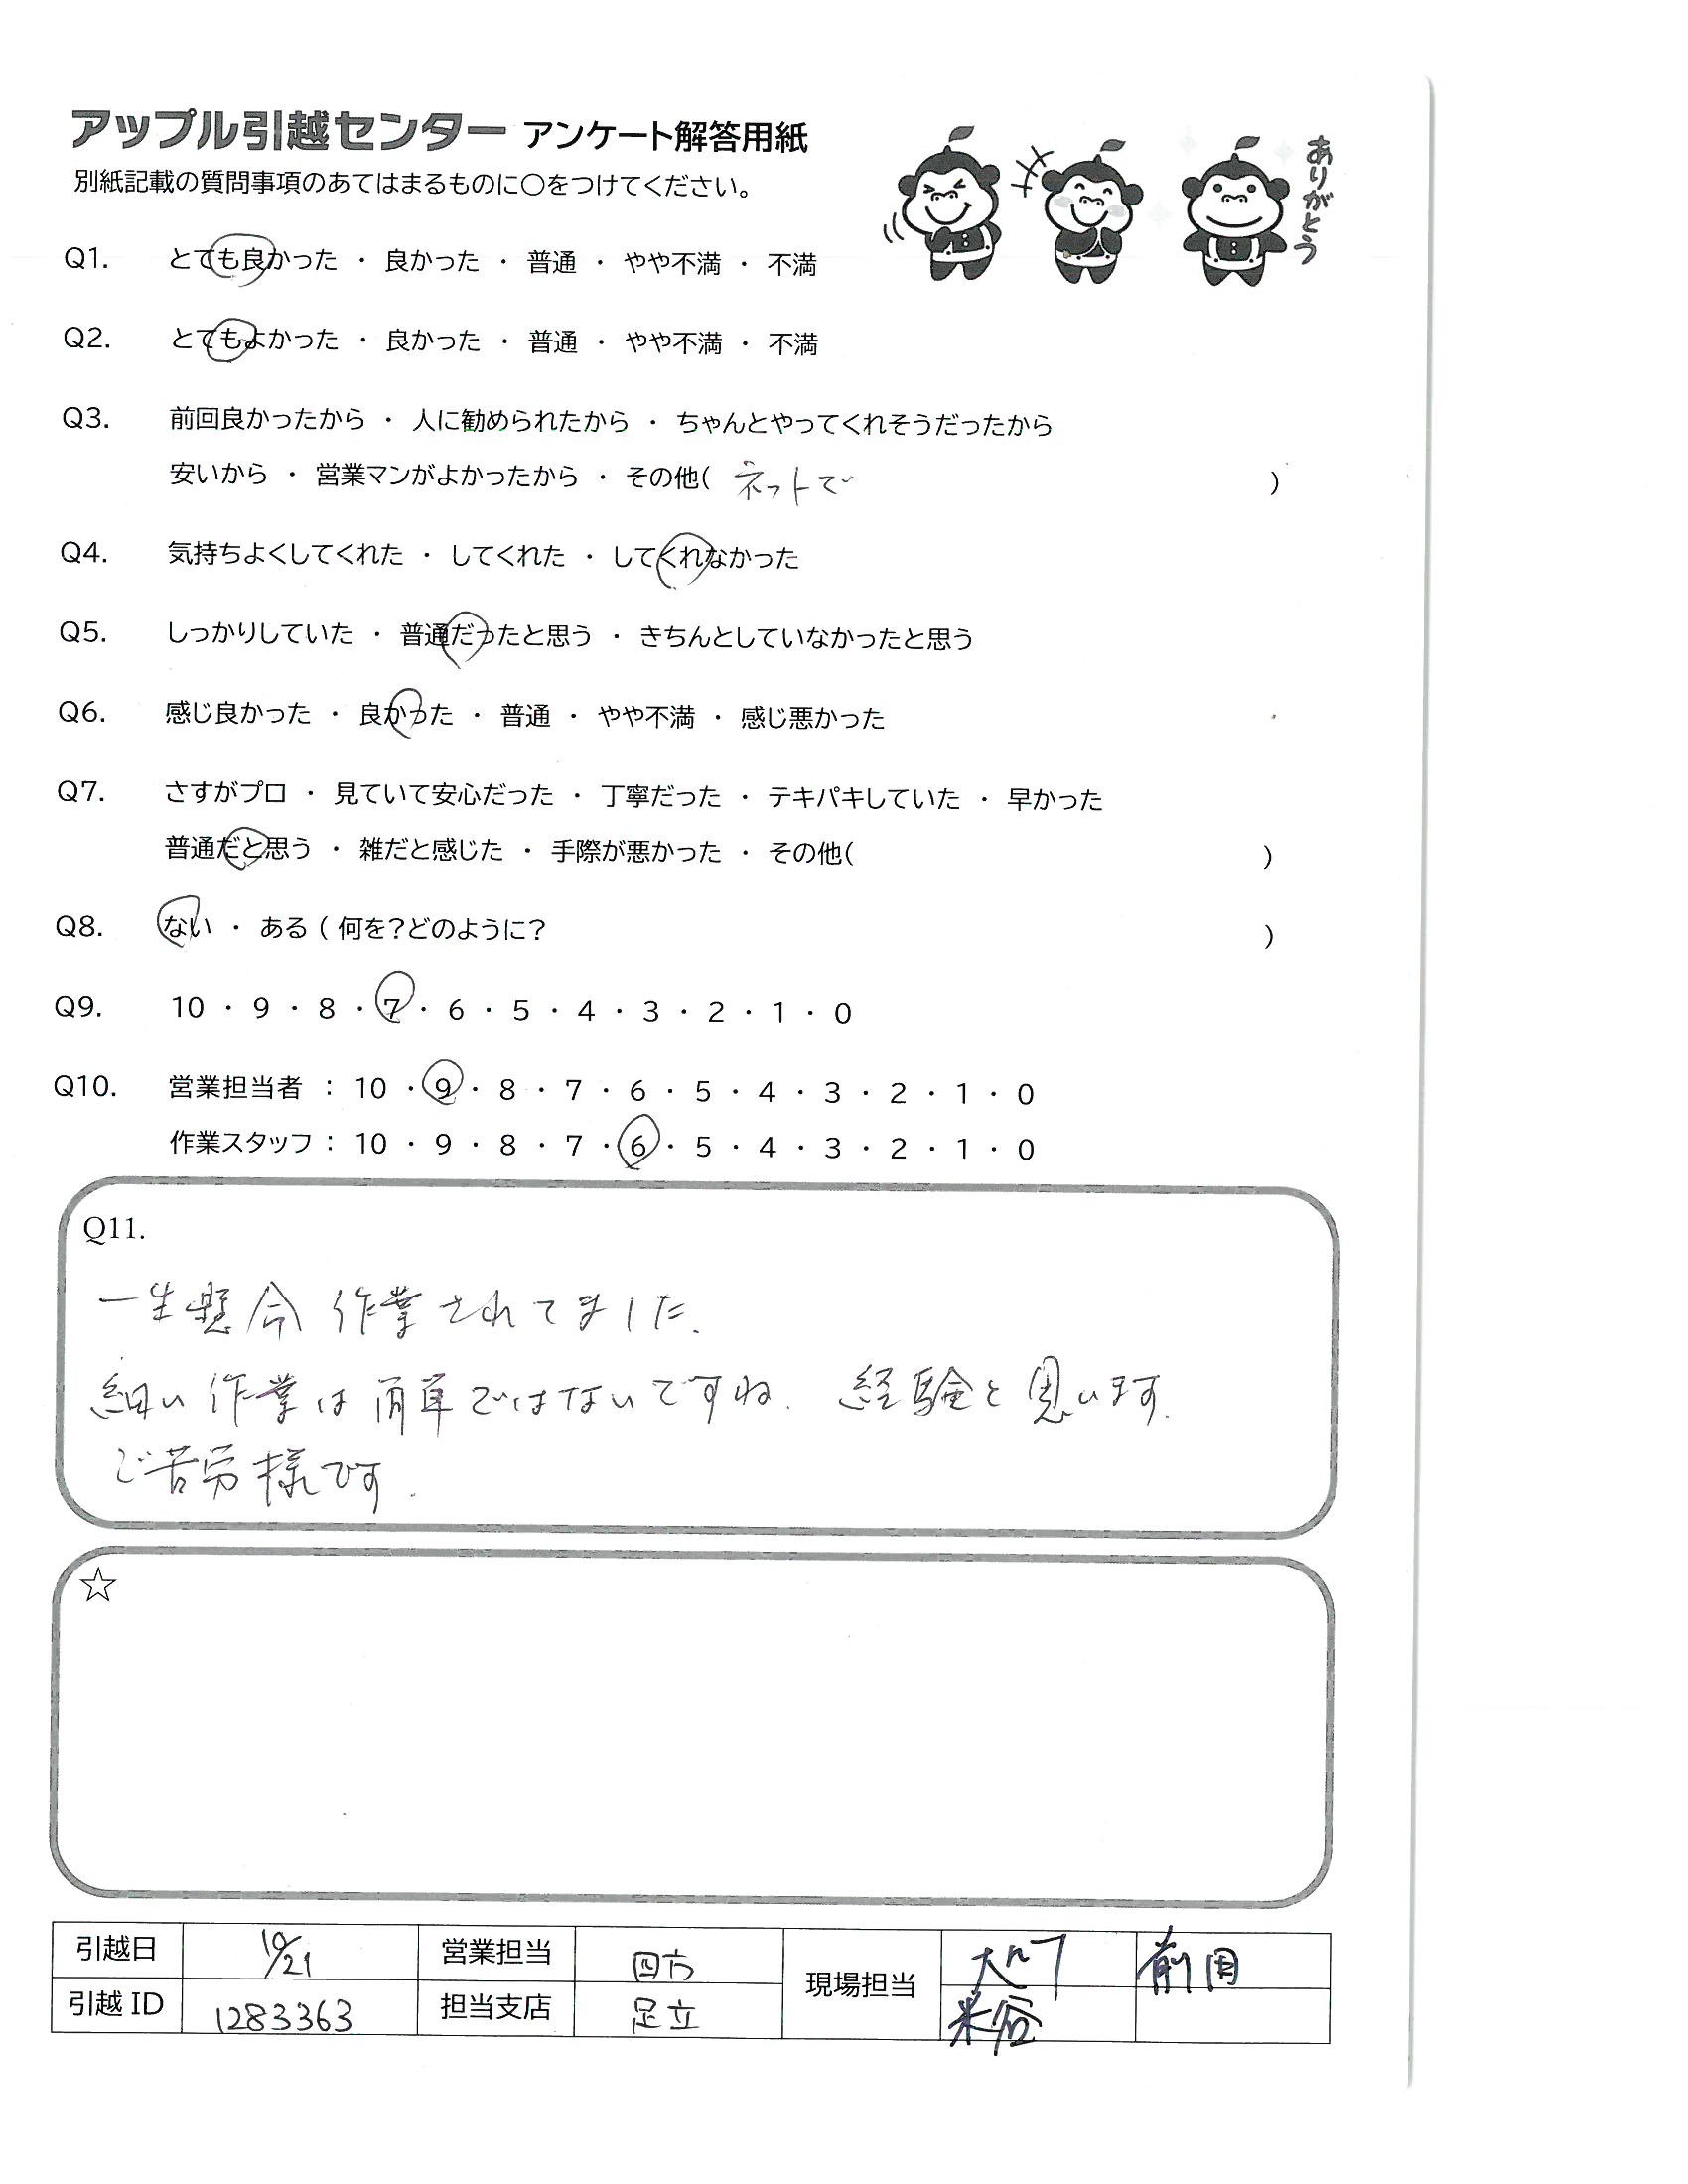 アップル引越センター アンケート解答用紙
別紙記載の質問事項のあてはまるものに〇をつけてください。
ありがとう
Q1. とても良かった ・ 良かった ・ 普通 ・ やや不満 ・ 不満
Q2. とてもよかった ・ 良かった ・ 普通 ・ やや不満 ・ 不満
Q3. 前回良かったから ・ 人に勧められたから ・ ちゃんとやってくれそうだったから
安いから ・ 営業マンがよかったから ・ その他( ネットで )
Q4. 気持ちよくしてくれた ・ してくれた ・ してくれなかった
Q5. しっかりしていた ・ 普通だったと思う ・ きちんとしていなかったと思う
Q6. 感じ良かった ・ 良かった ・ 普通 ・ やや不満 ・ 感じ悪かった
Q7. さすがプロ ・ 見ていて安心だった ・ 丁寧だった ・ テキパキしていた ・ 早かった
普通だと思う ・ 雑だと感じた ・ 手際が悪かった ・ その他( )
Q8. ない ・ ある ( 何を?どのように? )
Q9. 10 ・ 9 ・ 8 ・ 7 ・ 6 ・ 5 ・ 4 ・ 3 ・ 2 ・ 1 ・ 0
Q10. 営業担当者 : 10 ・ 9 ・ 8 ・ 7 ・ 6 ・ 5 ・ 4 ・ 3 ・ 2 ・ 1 ・ 0
作業スタッフ : 10 ・ 9 ・ 8 ・ 7 ・ 6 ・ 5 ・ 4 ・ 3 ・ 2 ・ 1 ・ 0
Q11.
一生懸命 作業されてました.
細い作業は簡単ではないですね. 経験と思います.
ご苦労様です.
☆
引越日 10/21 営業担当 四方 現場担当 前田
引越 ID 1283363 担当支店 足立 米谷